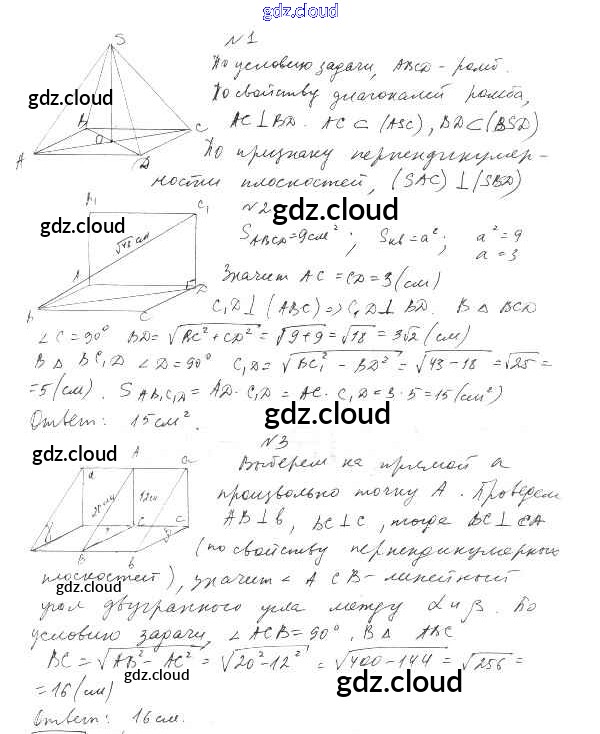 gdz.cloud
N1
По условию задачи, ABCD - ромб.
По свойству диагоналей ромба,
AC⊥BD. AC⊂(ASC), BD⊂(BSD)
По признаку перпендикуляр-
ности плоскостей, (SAC)⊥(SBD)
S
gdz.cloud
B
C
O
A
D
N2
gdz.cloud
S ABCD = 9 см²; Sкв = a²; a² = 9
a = 3
Значит AC = CD = 3 (см)
C₁D⊥(ABC) => C₁D⊥BD. В △ BCD
A₁
C₁
gdz.cloud
√43 см
A
D
B
C
∠C = 90° BD = √BC² + CD² = √9+9 = √18 = 3√2 (см)
В △ BC₁D ∠D = 90° C₁D = √BC₁² - BD² = √43 - 18 = √25 =
= 5 (см). S AB₁C₁D = AD · C₁D = AC · C₁D = 3 · 5 = 15 (см²)
Ответ: 15 см².
gdz.cloud
N3
gdz.cloud
Выберем на прямой a
произвольно точку A. Проведем
AB⊥b, BC⊥c, тогда BC⊥CA
(по свойству перпендикулярных
плоскостей), значит ∠ACB - линейный
угол двугранного угла между α и β. По
условию задачи, ∠ACB = 90°, В △ ABC
A
a
α
20 см
12 см
C
c
B
b
gdz.cloud
gdz.cloud
BC = √AB² - AC² = √20² - 12² = √400 - 144 = √256 =
= 16 (см)
gdz.cloud
gdz.cloud
Ответ: 16 см.